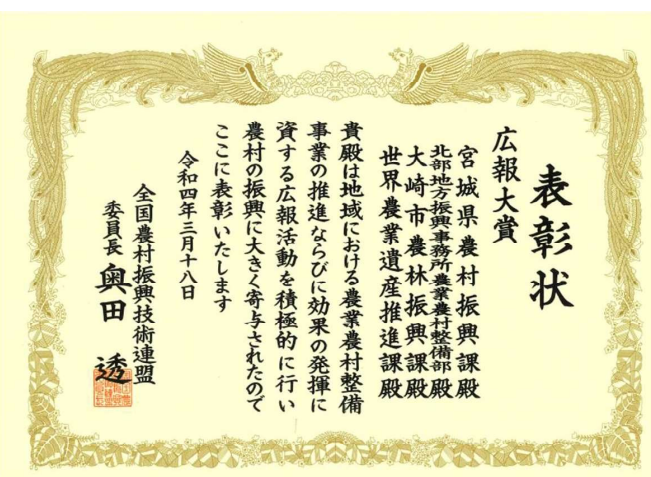 表彰状
広報大賞
宮城県農村振興課殿
北部地方振興事務所農業農村整備部殿
大崎市農林振興課殿
世界農業遺産推進課殿
貴殿は地域における農業農村整備
事業の推進ならびに効果の発揮に
資する広報活動を積極的に行い
農村の振興に大きく寄与されたので
ここに表彰いたします
令和四年三月十八日
全国農村振興技術連盟
委員長 奥田 透